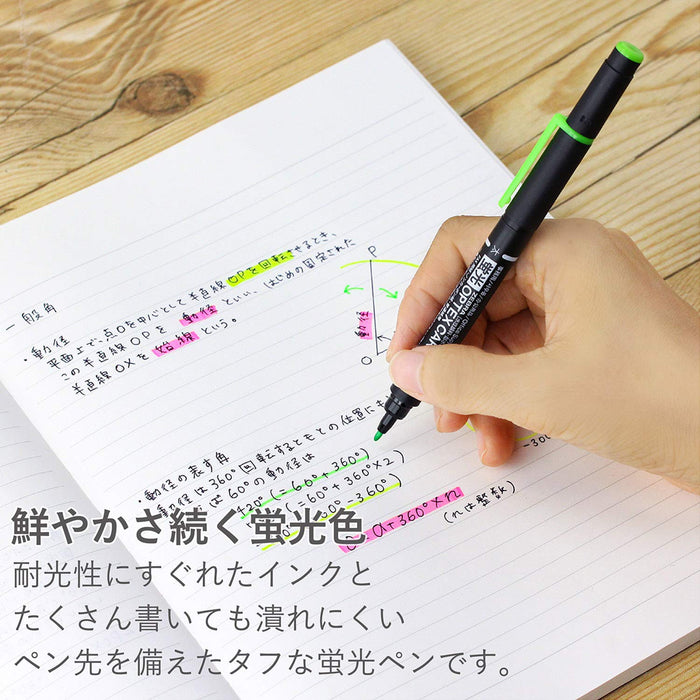 一般角
・動径
平面上で、点Oを中心として半直線OPを回転させるとき、
この半直線OPを 動径 といい、はじめの固定された
半直線OXを 始線 という。
P
動径
O
・動径の表す角
動径は360°回転するともとの位置にも
ば60°の動径は
420°(=60°+360°)
(=60°+360°×2)
-300°(=60°-360°)
-300
α+360°×n
(nは整数)
太
蛍光 OPTEX CAR
ZEBRA
鮮やかさ続く蛍光色
耐光性にすぐれたインクと
たくさん書いても潰れにくい
ペン先を備えたタフな蛍光ペンです。